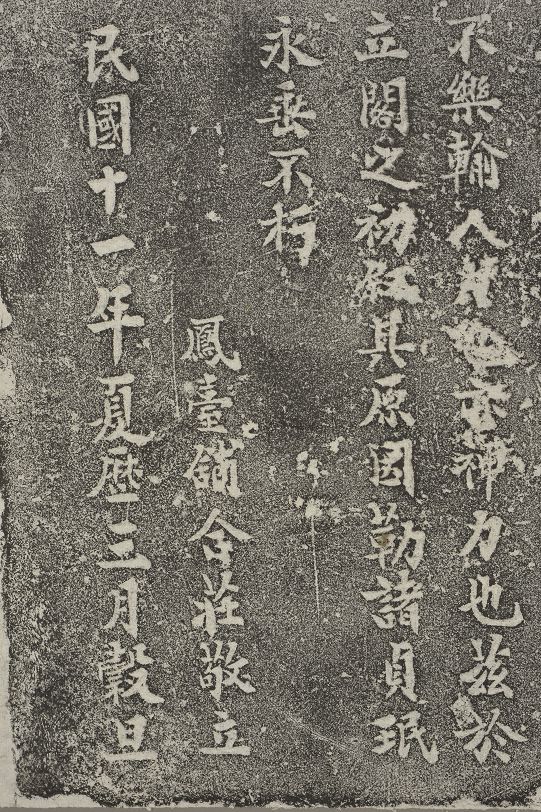 不樂輸人其也亦神力也茲於
立閣之初叙其原因勒諸貞珉
永垂不朽
鳳臺鎮合莊敬立
民國十一年夏曆三月穀旦